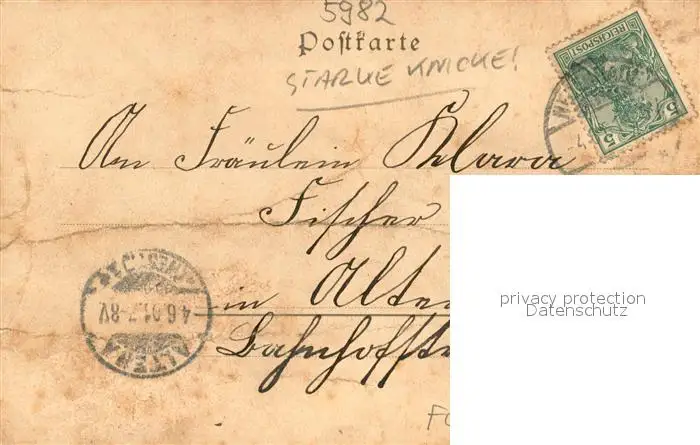 5982
Postkarte
STARKE KNICKE!
REICHSPOST
5 5
An Fräulein Klara
Fischer
in Alte
Bahnhofst
ALTENA
4.6.01.7-8V.
privacy protection
Datenschutz